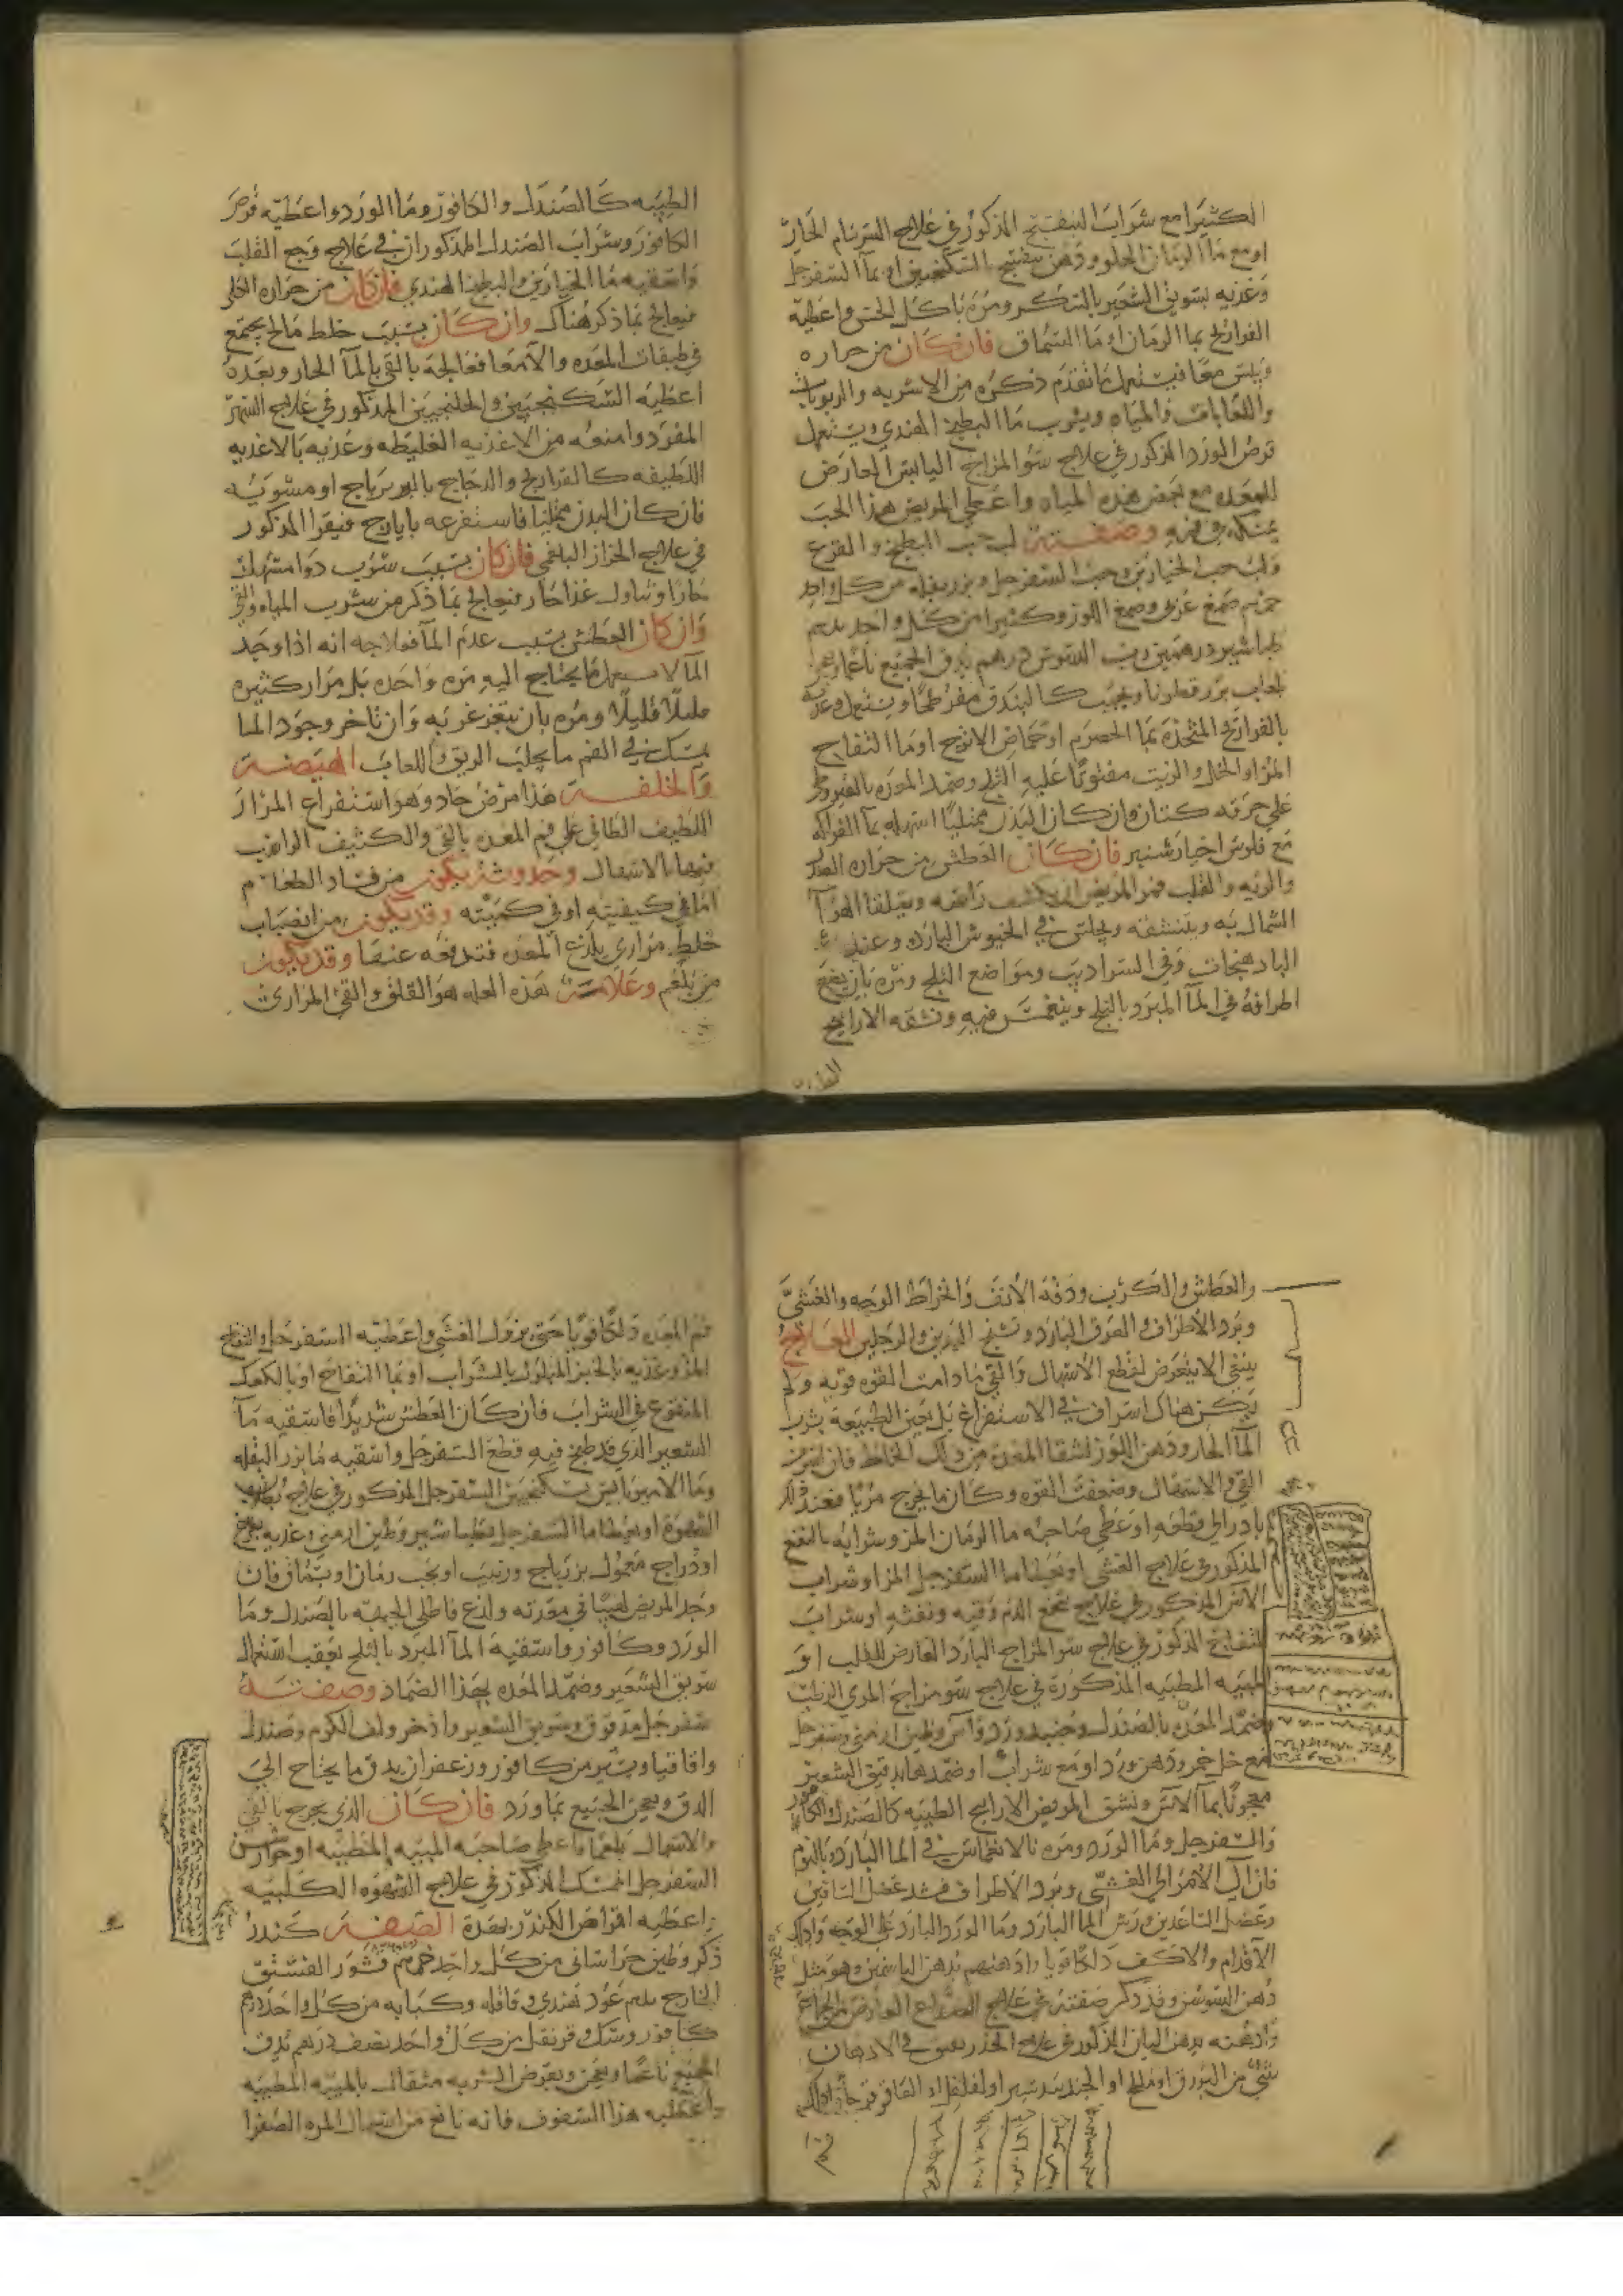 الكثيرا مع شراب البنفسج المذكور في علاج السرسام الحار
او مع ما الرمان الحلو ودهن بنفسج السكنجبين او بما السفرجل
وغذيه بسويق الشعير بالسكر ومره باكل الخس واعطيه
الفراريج بما الرمان او ما السماق فان كان من حراره
ويبس معا فيستعمل ما تقدم ذكره من الاشربه والربوبات
واللعابات والمياه ويشرب ما البطيخ الهندي ويستعمل
قرص الورد المذكور في علاج سو المزاج اليابس العارض
للمعده مع بعض هذه المياه واعطي المريض هذا الحب
يمسكه في فيه وصفته لب حب البطيخ والقرع
ولب حب الخيارين وحب السفرجل وبزر بقله من كل واحد
صمغ عربي وصمغ اللوز وكثيرا من كل واحد
طباشير درهمين رب السوس درهم يدق الجميع ناعما ويعجن
بلعاب بزر قطونا ويحبب كالبندق مفرطحا ويستعمل وغذيه
بالفراريج المتخذه بما الحصرم او حماض الاترج او ما التفاح
المز او الخل والزيت مفتوتا عليه الثلج وضمد المعده بالقيروطي
علي خرقه كتان وان كان البدن ممتليا اسهله بما الفواكه
مع فلوس اخيار شنبر فان كان العطش من حراره الصدر
والريه والقلب فمر المريض ان يكشف راسه ويتلقا الهوا
الشمالي به ويستنشقه ويجلس في الخيوش البارده وعند
الباذهنجات وفي السراديب ومواضع الثلج ومره بان يضع
اطرافه في الما المبرد بالثلج وينغمس فيه ونشقه الاراييح
الطيبه
الطيبه كالصندل والكافور وما الورد واعطيه قرص
الكافور وشراب الصندل المذكوران في علاج وجع القلب
واسقيه ما الخيارين والبطيخ الهندي فان كان من حراره الكلي
فيعالج بما ذكر هناك وان كان بسبب خلط مالح يجتمع
في طبقات المعده والامعا فعالجه بالقي بالما الحار وبعده
اعطيه السكنجبين والجلنجبين المذكور في علاج السهر
المفرد وامنعه من الاغذيه الغليظه وغذيه بالاغذيه
اللطيفه كالفراريج والدجاج بالزيرباج او مشويه
فان كان البدن ممتليا فاستفرغه بايارج فيقرا المذكور
في علاج الحزاز البلغمي فان كان بسبب شرب دوا مسهل
حارا وتناول غذا حار فيعالج بما ذكر من شرب المياه والقي
وان كان العطش بسبب عدم الما فعلاجه انه اذا وجد
الما لا يستعمل ما يحتاج اليه مره واحده بل مرار كثيره
قليلا قليلا ومره بان يتغرغر به وان تاخر وجود الما
يمسك في الفم ما يجلب الريق واللعاب الهيضه
والخلفه هذا مرض حاد وهو استفراغ المرار
اللطيف الطافي علي فم المعده بالقي والكثيف الراسب
فيها بالاسهال وحدوثه يكون من فساد الطعام
اما في كيفيته او في كميته وقد يكون من انصباب
خلط مراري يلذع المعده فتدفعه عنها وقد يكون
من بلغم وعلامه هذه العله هو القلق والقي المراري
والعطش والكرب ودقه الانف وانخراط الوجه والغشي
وبرد الاطراف والعرق البارد وتشنج اليدين والرجلين العلاج
ينبغي الا يتعرض لقطع الاسهال والقي ما دامت القوه قويه ولم
يكن هناك اسراف في الاستفراغ بل يعين الطبيعه بشرب
الما الحار ودهن اللوز لتنقا المعده من ذلك الخلط فان اسرف
القي والاسهال وضعفت القوه وكان ما يخرج مريا فعند ذلك
بادر الي قطعه اوعطي صاحبه ما الرمان المز وشرابه بالنعنع
المذكور في علاج الغشي او يعطا ما السفرجل المز او شراب
الاس المذكور في علاج تنخع الدم وقيه ونفثه او شراب
التفاح المذكور في علاج سو المزاج البارد العارض للقلب او
الميبه المطيبه المذكورة في علاج سو مزاج المري الرطب
وضمد المعده بالصندل وجنبد ورد واس وطين ارمني وسفرجل
مع خل خمر ودهن ورد او مع شراب او ضمدها بدقيق الشعير
معجونا بما الاس ونشق المريض الاراييح الطيبه كالصندل والكافور
والسفرجل وما الورد ومره بالانغماس في الما البارد بالنوم
فان آل الامر الي الغشي وبرد الاطراف فشد عضل الساقين
وعضل الساعدين ورش الما البارد وما الورد البارد علي الوجه وادلك
الاقدام والاكف دلكا قويا وادهنهم بدهن الياسمين وهو مثل
دهن السوسن وقد ذكر صفته في علاج الصداع العارض من الجماع
وادهنه بدهن البان المذكور في علاج الخدر يفتق في الادهان
شي من البورق او ملح او الجندبيدستر او لفلفل او العاقرقرحا وادلك
فم
فم المعده دلكا قويا حتي يزول الغشي واعطيه السفرجل والتفاح
المز وغذيه بالخبز المبلول بالشراب او بما التفاح او بالكعك
المنقوع في الشراب فان كان العطش شديدا فاسقيه ما
الشعير الذي قد طبخ فيه قطع السفرجل واسقيه ما بزر البقله
وما الامبرباريس بسكنجبين السفرجل المذكور في علاج بطلان
الشهوة او يعطا ما السفرجل بطباشير وطين ارمني وغذيه بفروج
او دراج معمول بزرباج وزبيب او بحب رمان او بسماق فان
وجد المريض لهيبا في معدته ولذع فاطلي الجبهه بالصندل وما
الورد وكافور واسقيه الما المبرد بالثلج بعقب استعمال
سويق الشعير وضمد المعده بهذا الضماد وصفته
سفرجل مدقوق وسويق الشعير واذخر ولف الكرم وصندل
واقاقيا ويسير من كافور وزعفران يدق ما يحتاج الي
الدق ويعجن الجميع بما ورد فان كان الذي يخرج بالقي
والاسهال بلغما فاعطي صاحبه الميبه المطيبه او جوارشن
السفرجل الممسك المذكور في علاج الشهوه الكلبيه
واعطيه اقراص الكندر بهذة الصفه كندر
ذكر وطين خراساني من كل واحد قشور الفستق
الخارج عود هندي وقاقله وكبابه من كل واحد
كافور ومسك وقرنفل من كل واحد نصف درهم يدق
الجميع ناعما ويعجن ويقرض الشربه مثقال بالميبه المطيبه
واعطيه هذا السفوف فانه نافع من اسهال المره الصفرا